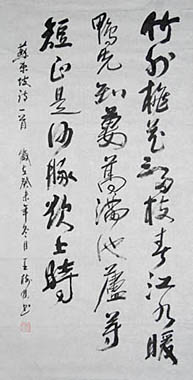 竹外桃花三両枝春江水暖
鴨先知蔞蒿滿地蘆芽
短正是河豚欲上時
蘇東坡詩一首 歲在癸未年冬月 王